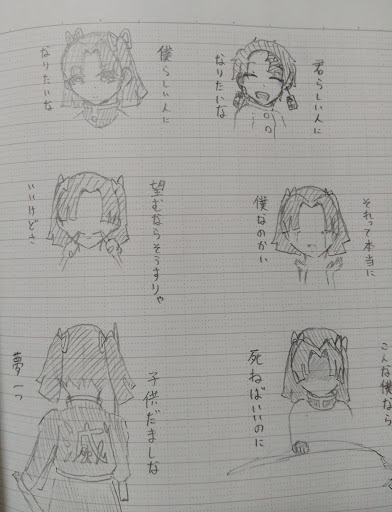 君らしい人に
なりたいな
僕らしい人に
なりたいな
それって本当に
僕なのかい
望むならそうすりゃ
いいけどさ
こんな僕なら
死ねばいいのに
子供だましな
夢一つ
滅